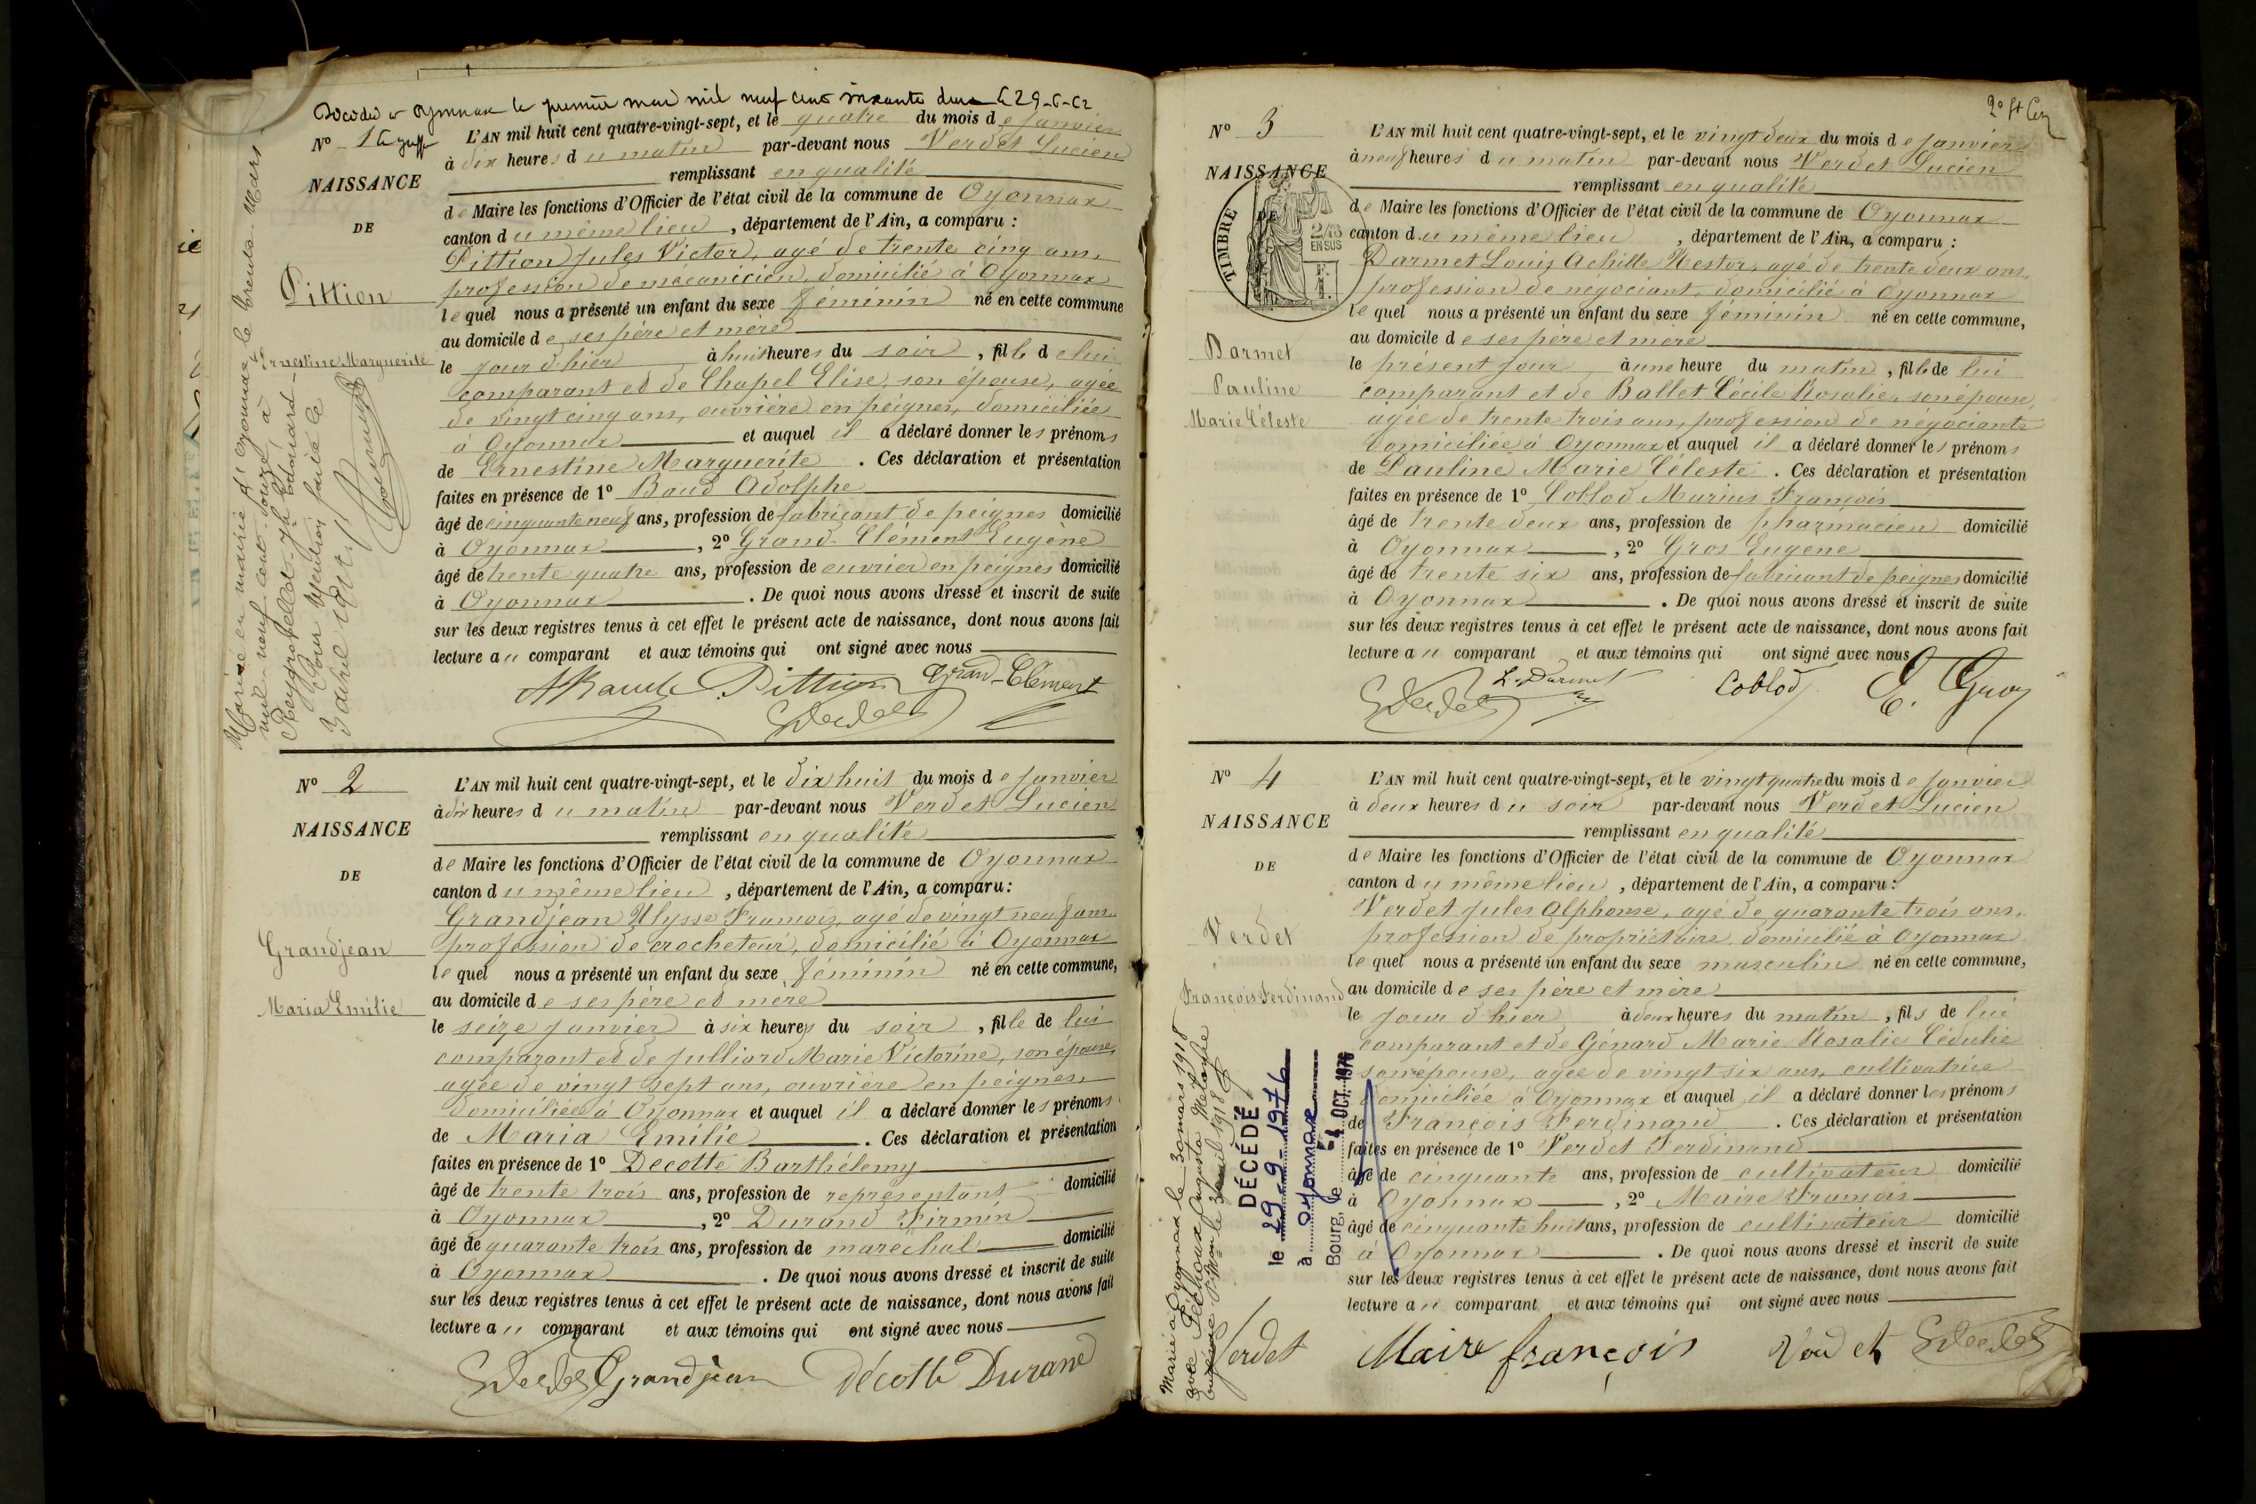 Décédée à Oyonnax le premier mai mil neuf cent soixante deux le 29-6-62
N° 1
NAISSANCE
DE
Pittion
Ernestine Marguerite
Mariée en mairie d'Oyonnax le trente Mars
mil neuf cent douze à
Pour Mention faite le
L'AN mil huit cent quatre-vingt-sept, et le quatre du mois de Janvier
à dix heures du matin par-devant nous Verdet Lucien
remplissant en qualité
de Maire les fonctions d'Officier de l'état civil de la commune de Oyonnax
canton du même lieu, département de l'Ain, a comparu :
Pittion Jules Victor, agé de trente cinq ans,
profession de mécanicien, domicilié à Oyonnax
lequel nous a présenté un enfant du sexe féminin né en cette commune
au domicile de ses père et mère
le jour d'hier à huit heures du soir, fille de lui
comparant et de Chapel Elise, son épouse, agée
de vingt cinq ans, ouvrière en peignes, domiciliée
à Oyonnax et auquel il a déclaré donner les prénoms
de Ernestine Marguerite. Ces déclaration et présentation
faites en présence de 1° Baud Adolphe
âgé de cinquante neuf ans, profession de fabricant de peignes domicilié
à Oyonnax, 2° Grand-Clément Eugène
âgé de trente quatre ans, profession de ouvrier en peignes domicilié
à Oyonnax. De quoi nous avons dressé et inscrit de suite
sur les deux registres tenus à cet effet le présent acte de naissance, dont nous avons fait
lecture au comparant et aux témoins qui ont signé avec nous
A Baud Pittion Grand-Clément
Verdet
N° 2
NAISSANCE
DE
Grandjean
Maria Emilie
L'AN mil huit cent quatre-vingt-sept, et le dix huit du mois de Janvier
à dix heures du matin par-devant nous Verdet Lucien
remplissant en qualité
de Maire les fonctions d'Officier de l'état civil de la commune de Oyonnax
canton du même lieu, département de l'Ain, a comparu :
Grandjean Ulysse François, agé de vingt neuf ans,
profession de crocheteur, domicilié à Oyonnax
lequel nous a présenté un enfant du sexe féminin né en cette commune,
au domicile de ses père et mère
le seize janvier à six heures du soir, fille de lui
comparant et de Julliard Marie Victorine, son épouse,
agée de vingt sept ans, ouvrière en peignes,
domiciliée à Oyonnax et auquel il a déclaré donner les prénoms
de Maria Emilie. Ces déclaration et présentation
faites en présence de 1° Decotte Barthélemy
âgé de trente trois ans, profession de représentant domicilié
à Oyonnax, 2° Durand Firmin
âgé de quarante trois ans, profession de maréchal domicilié
à Oyonnax. De quoi nous avons dressé et inscrit de suite
sur les deux registres tenus à cet effet le présent acte de naissance, dont nous avons fait
lecture au comparant et aux témoins qui ont signé avec nous
Verdet Grandjean Décotte Durand
N° 3
NAISSANCE
DE
TIMBRE
2/10
EN SUS
Darmet
Pauline
Marie Céleste
L'AN mil huit cent quatre-vingt-sept, et le vingt deux du mois de Janvier
à neuf heures du matin par-devant nous Verdet Lucien
remplissant en qualité
de Maire les fonctions d'Officier de l'état civil de la commune de Oyonnax
canton du même lieu, département de l'Ain, a comparu :
Darmet Louis Achille Nestor, agé de trente deux ans,
profession de négociant, domicilié à Oyonnax
lequel nous a présenté un enfant du sexe féminin né en cette commune,
au domicile de ses père et mère
le présent jour à une heure du matin, fille de lui
comparant et de Ballet Cécile Rosalie, son épouse,
agée de trente trois ans, profession de négociante
domiciliée à Oyonnax et auquel il a déclaré donner les prénoms
de Pauline Marie Céleste. Ces déclaration et présentation
faites en présence de 1° Coblod Marius François
âgé de trente deux ans, profession de pharmacien domicilié
à Oyonnax, 2° Gros Eugène
âgé de trente six ans, profession de fabricant de peignes domicilié
à Oyonnax. De quoi nous avons dressé et inscrit de suite
sur les deux registres tenus à cet effet le présent acte de naissance, dont nous avons fait
lecture au comparant et aux témoins qui ont signé avec nous
Verdet L. Darmet Coblod E. Gros
N° 4
NAISSANCE
DE
Verdet
François Ferdinand
Marié à Oyonnax le 30 mars 1918
avec Péchoux Augusta Mélanie
DÉCÉDÉ
le 29-9-1976
à Oyonnax
Bourg, le -4 OCT. 1976
L'AN mil huit cent quatre-vingt-sept, et le vingt quatre du mois de Janvier
à deux heures du soir par-devant nous Verdet Lucien
remplissant en qualité
de Maire les fonctions d'Officier de l'état civil de la commune de Oyonnax
canton du même lieu, département de l'Ain, a comparu :
Verdet Jules Alphonse, agé de quarante trois ans,
profession de propriétaire, domicilié à Oyonnax
lequel nous a présenté un enfant du sexe masculin né en cette commune,
au domicile de ses père et mère
le jour d'hier à deux heures du matin, fils de lui
comparant et de Génard Marie Rosalie Cédulie
son épouse, agée de vingt six ans, cultivatrice
domiciliée à Oyonnax et auquel il a déclaré donner les prénoms
de François Ferdinand. Ces déclaration et présentation
faites en présence de 1° Verdet Ferdinand
âgé de cinquante ans, profession de cultivateur domicilié
à Oyonnax, 2° Maire François
âgé de cinquante huit ans, profession de cultivateur domicilié
à Oyonnax. De quoi nous avons dressé et inscrit de suite
sur les deux registres tenus à cet effet le présent acte de naissance, dont nous avons fait
lecture au comparant et aux témoins qui ont signé avec nous
Verdet Maire françois Verdet Verdet